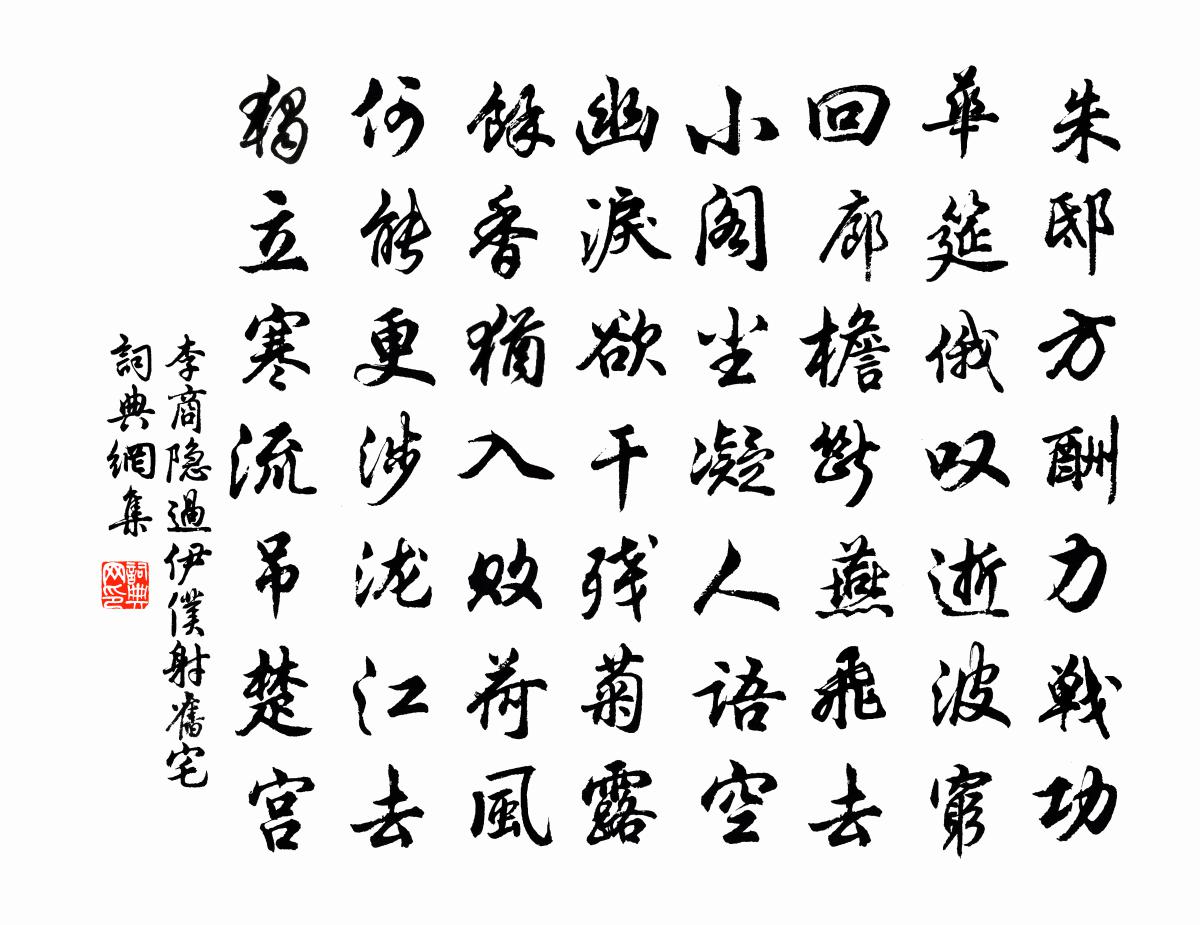 朱邸方酬力戰功
華筵俄叹逝波窮
回廊檐斷燕飛去
小阁尘凝人语空
幽淚欲干残菊露
餘香猶入败荷風
何能更涉泷江去
獨立寒流吊楚宫
李商隐過伊僕射舊宅
詞典網集
詞典网印